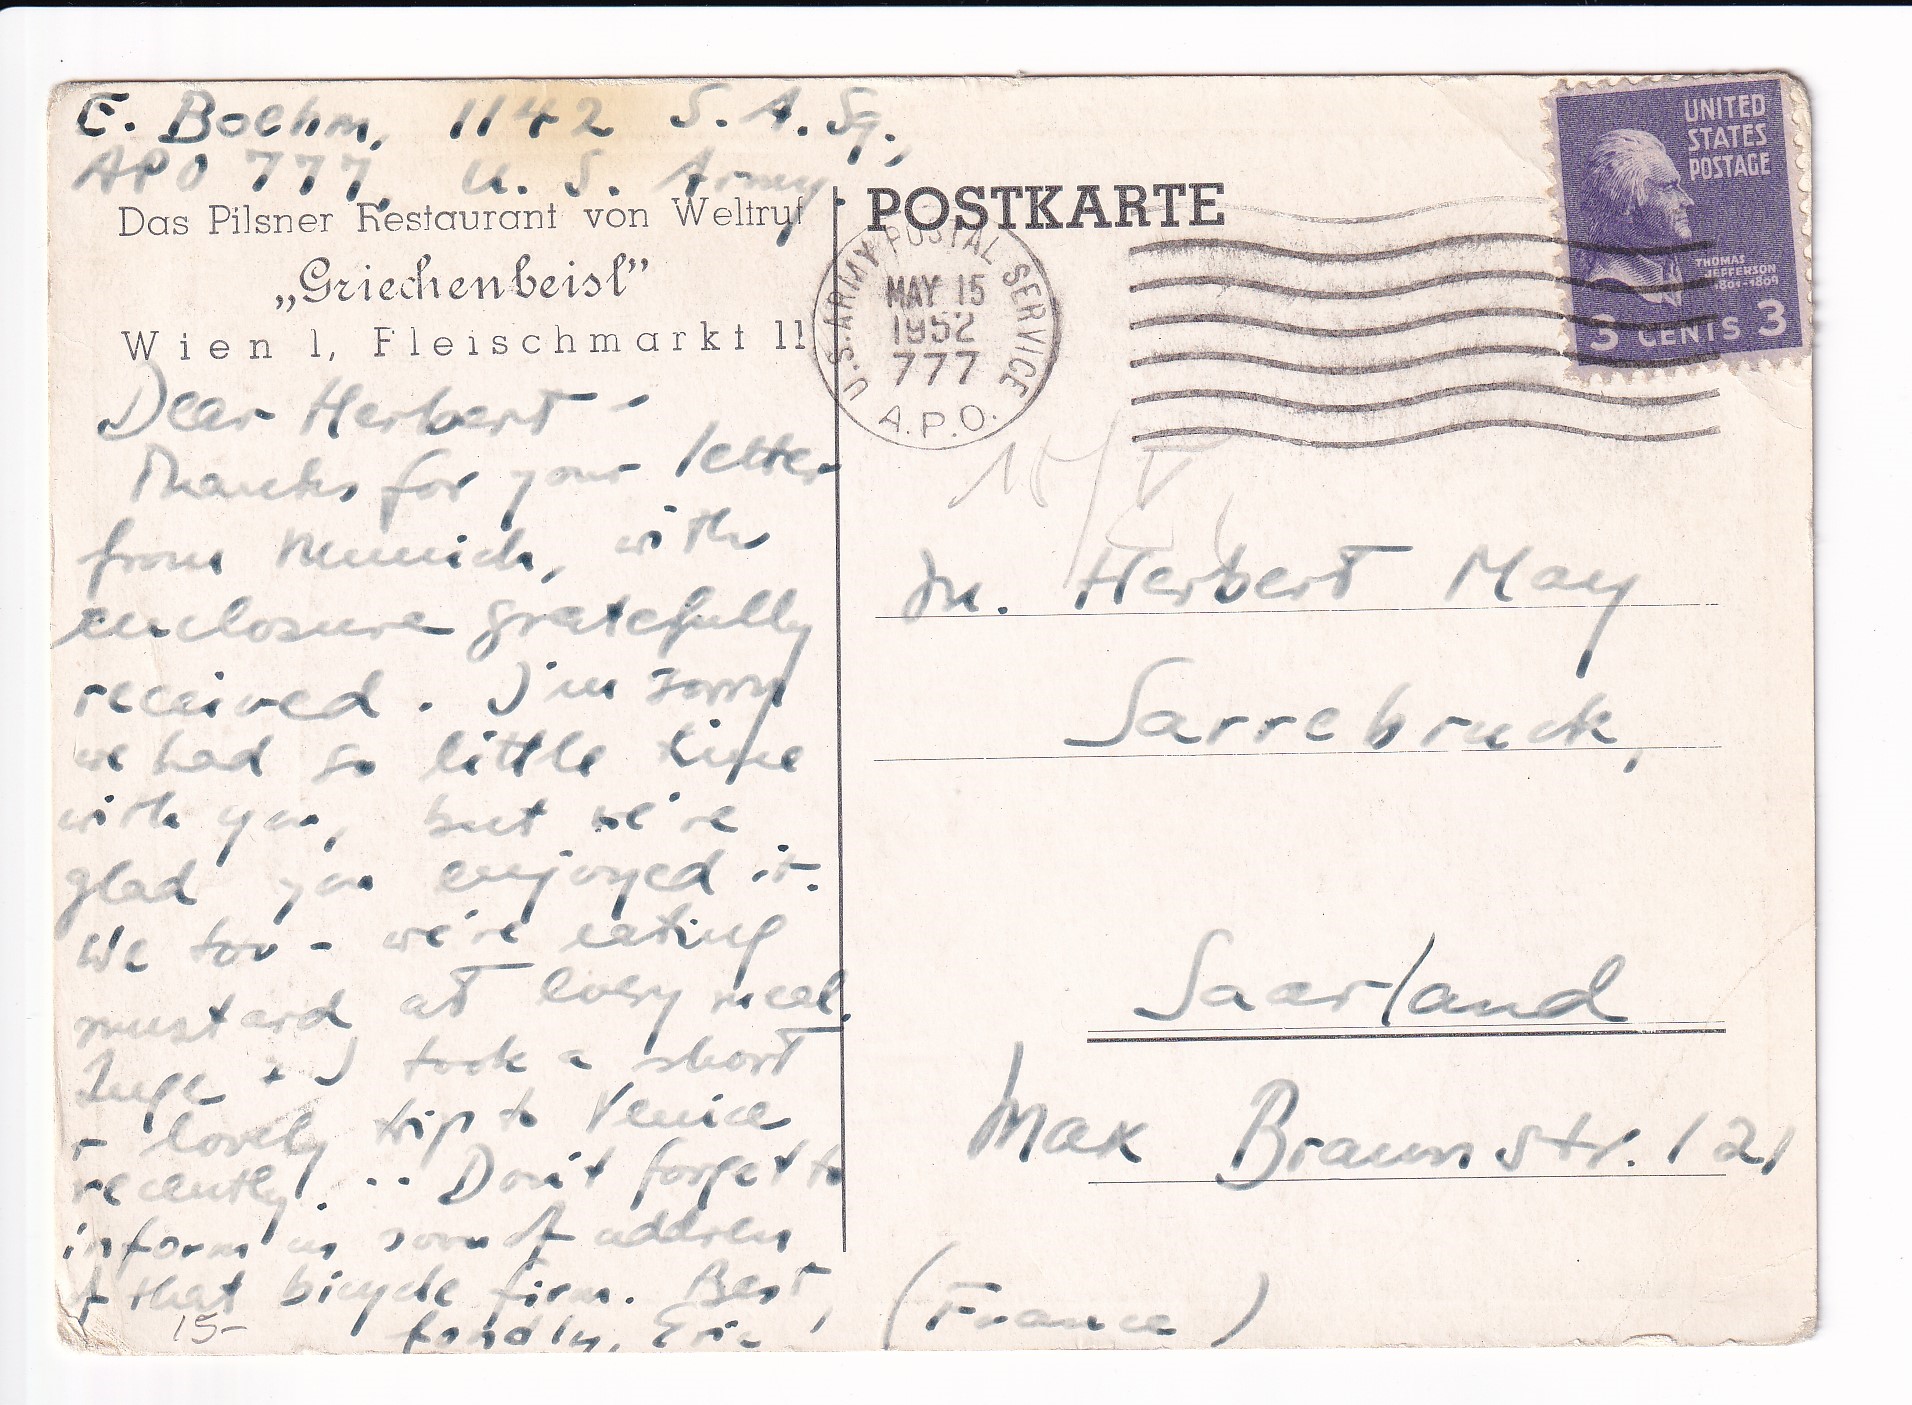 E. Boehm, 1142 S. A. Sq.,
APO 777, U. S. Army
Das Pilsner Restaurant von Weltruf
„Griechenbeisl”
Wien 1, Fleischmarkt 11
Dear Herbert -
Thanks for your letter
from Munich, with
enclosure gratefully
received. I'm sorry
we had so little time
with you, but we're
glad you enjoyed it.
We too - we're eating
mustard at every meal.
Inge + I took a short
+ lovely trip to Venice
recently. .. Don't forget to
inform us soon of address
of that bicycle firm. Best,
fondly, Eric
15-
POSTKARTE
U.S. ARMY POSTAL SERVICE
MAY 15
1952
777
A.P.O.
UNITED
STATES
POSTAGE
THOMAS
JEFFERSON
1801-1809
3 CENTS 3
15/V
Herbert May
Sarrebruck,
Saarland
Max Braun str. 121
(France)